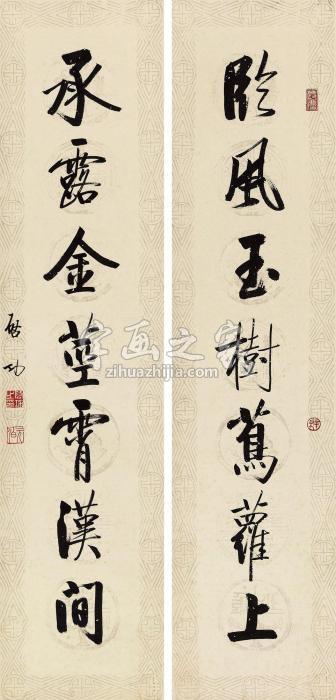 臨風玉樹蔦蘿上
承露金莖霄漢間
啟功
字画之家
zihuazhijia.com